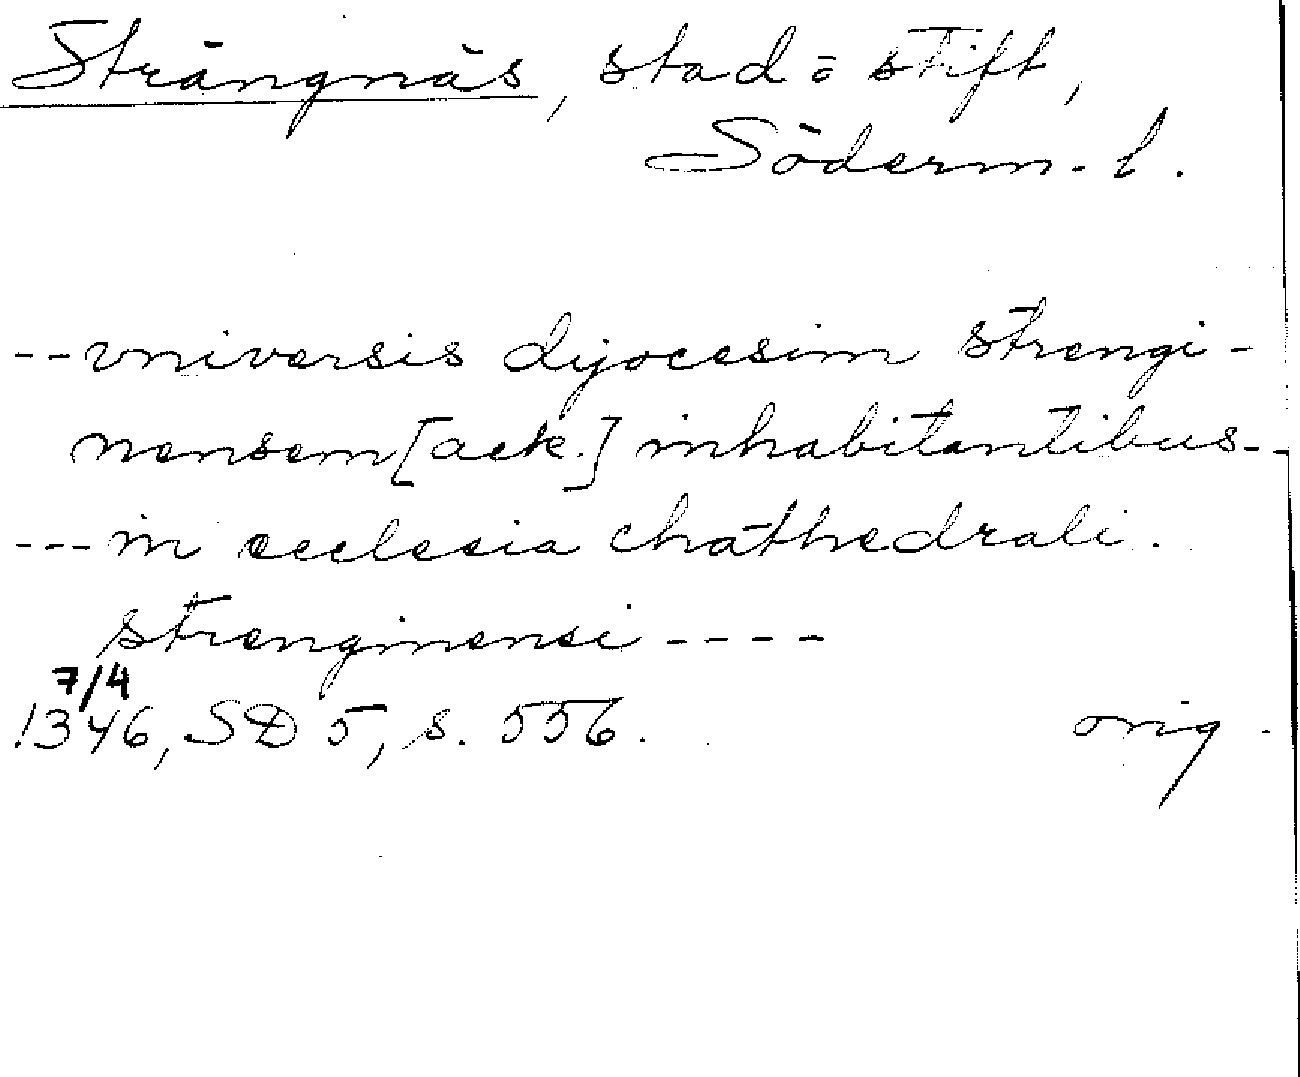 Strängnäs, stad o stift,
Söderm. l.
-- vniversis dijocesim strengi-
nensem [ack.] inhabitantibus--
--- in ecclesia chathedrali
strenginensi ----
7/4
1346, SD 5, s. 556. orig.